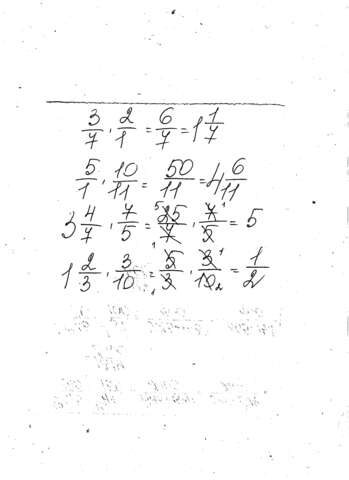 3/7 · 2/1 = 6/7 = 1 1/7
5/1 · 10/11 = 50/11 = 4 6/11
3 4/7 · 7/5 = 25/7 · 7/5 = 5
1 2/3 · 3/10 = 5/3 · 3/10 = 1/2